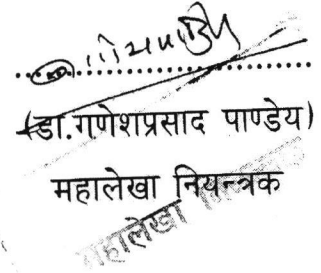 (डा.गणेशप्रसाद पाण्डेय)
महालेखा नियन्त्रक
महालेखा